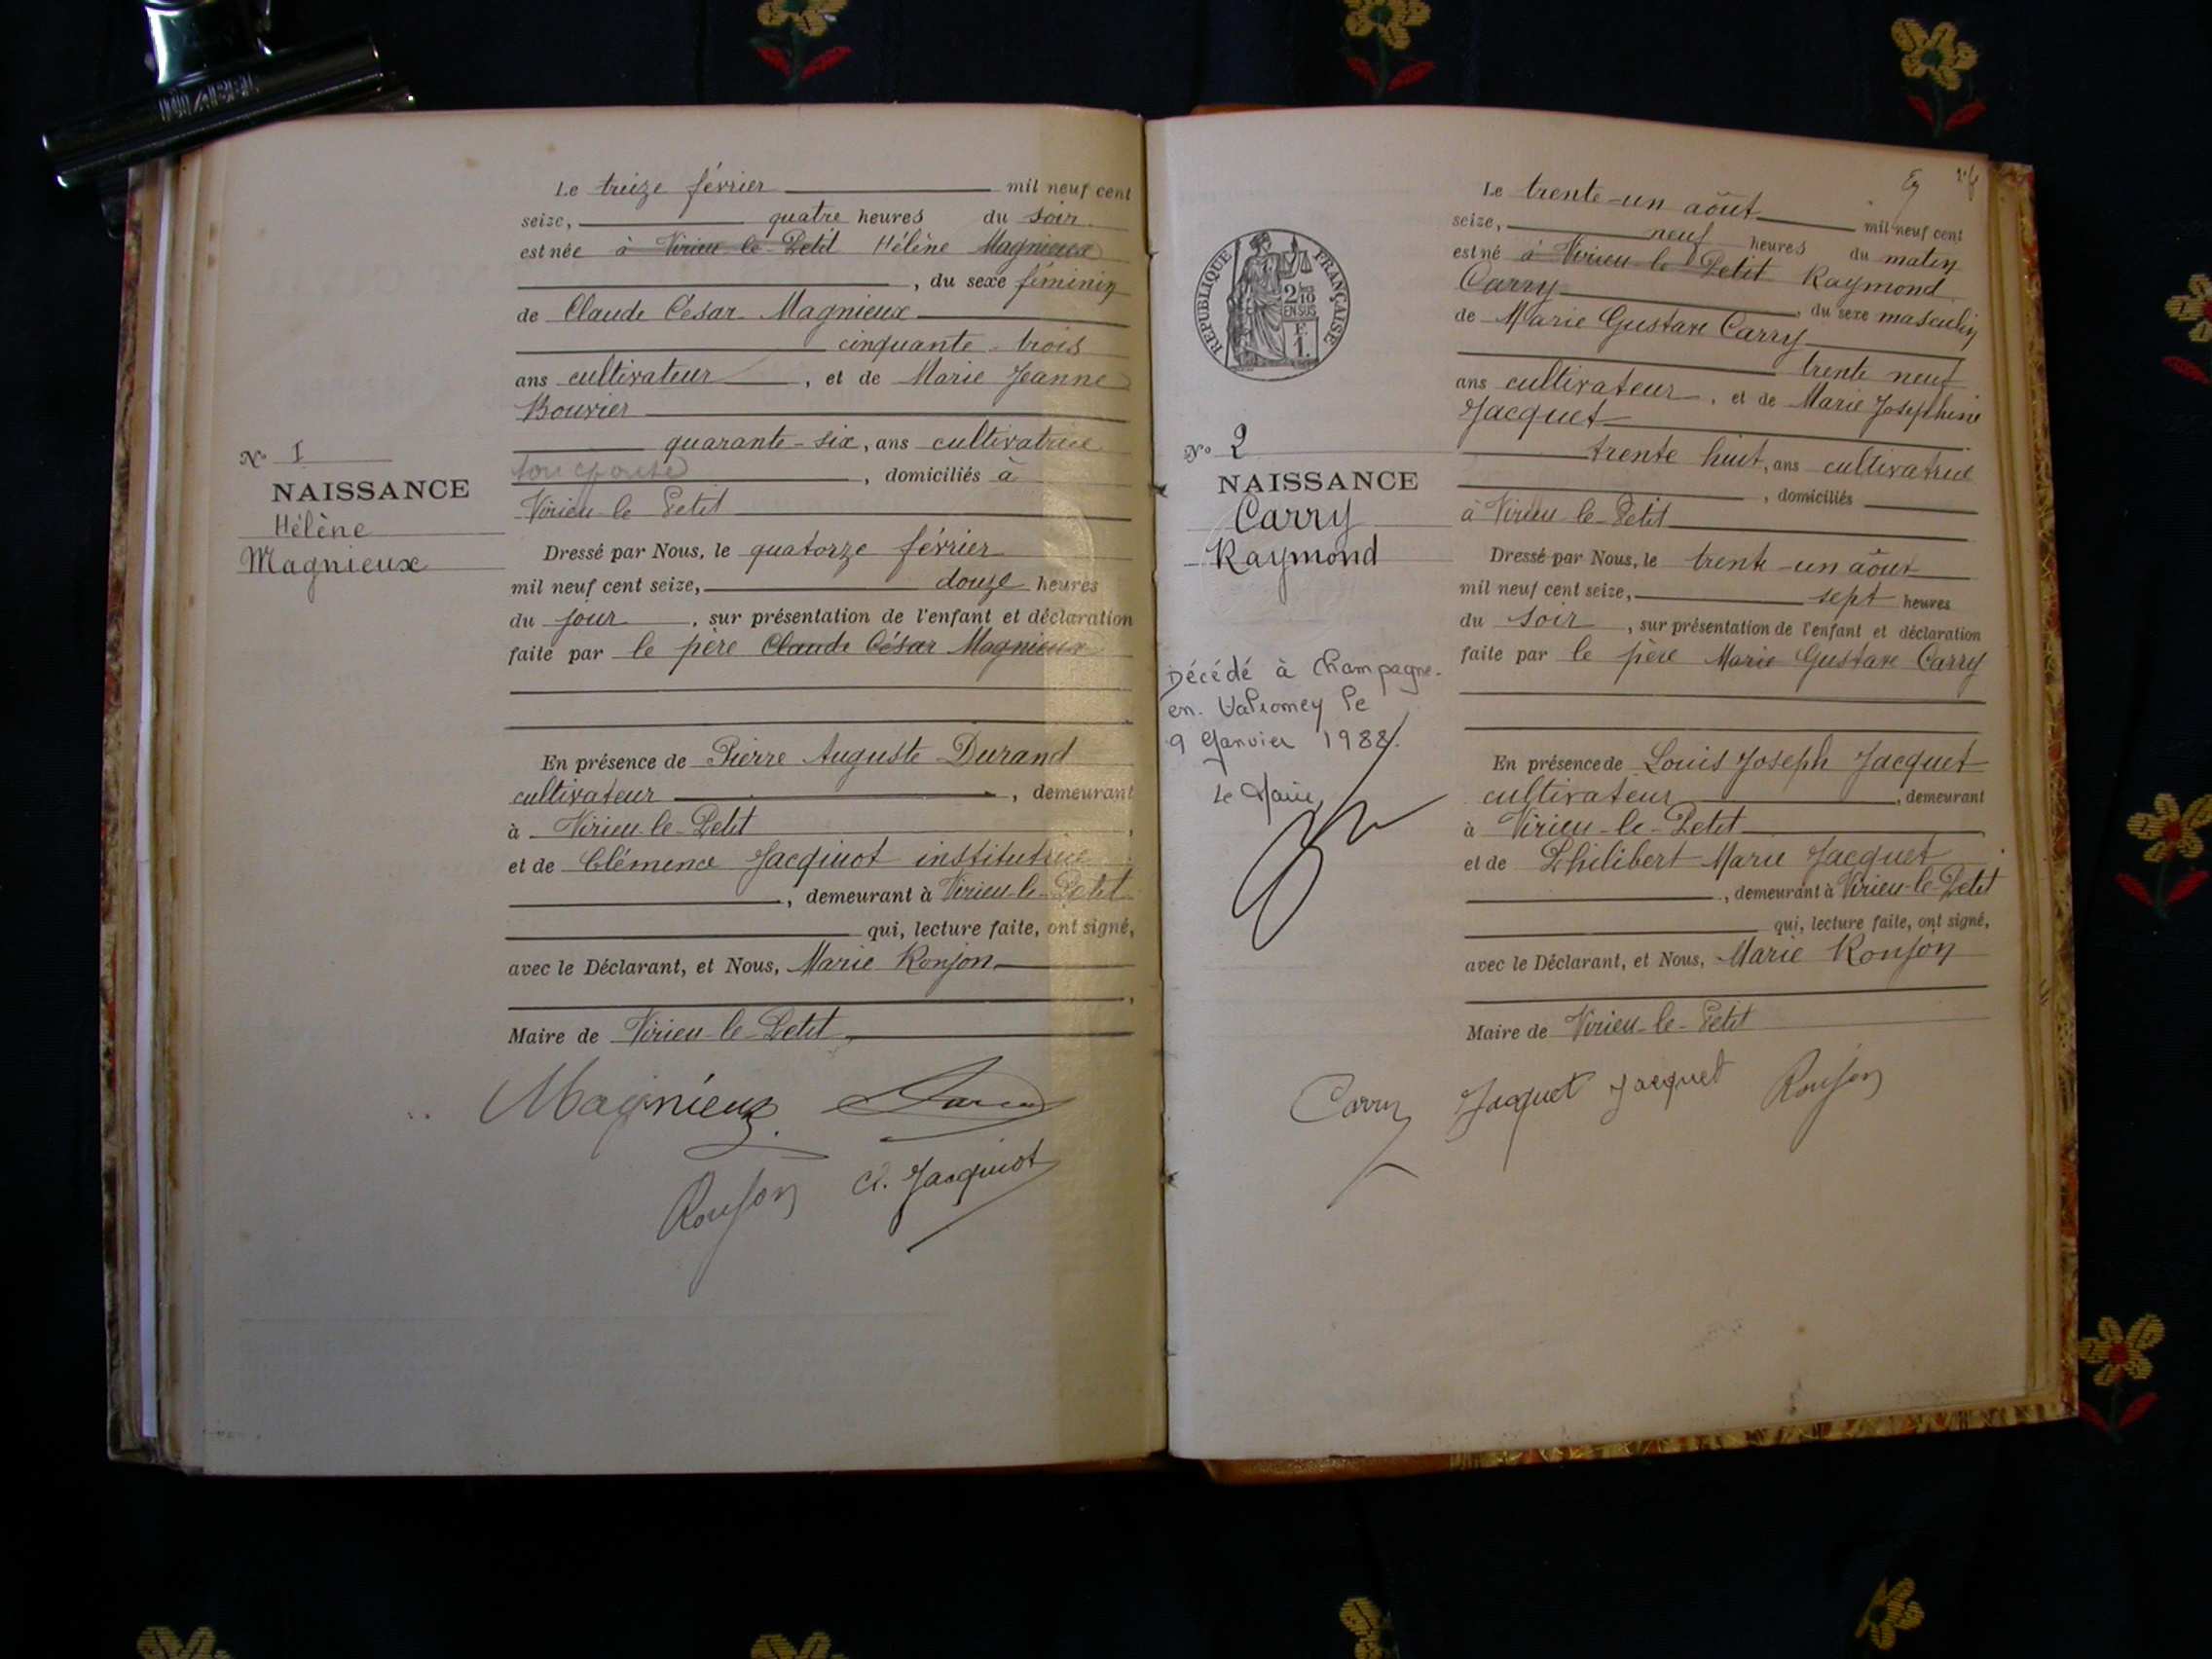 Le treize février mil neuf cent
seize, quatre heures du soir
est née à Virieu-le-Petit Hélène Magnieux
, du sexe féminin
de Claude César Magnieux
cinquante-trois
ans cultivateur, et de Marie Jeanne
Bouvier
quarante-six, ans cultivatrice
son épouse, domiciliés à
Virieu-le-Petit
Dressé par Nous, le quatorze février
mil neuf cent seize, douze heures
du jour, sur présentation de l'enfant et déclaration
faite par le père Claude César Magnieux
En présence de Pierre Auguste Durand
cultivateur, demeurant
à Virieu-le-Petit,
et de Clémence Jacquiot institutrice
, demeurant à Virieu-le-Petit
qui, lecture faite, ont signé,
avec le Déclarant, et Nous, Marie Ronjon
,
Maire de Virieu-le-Petit
Magnieux
Ronjon Cl. Jacquiot
No 1
NAISSANCE
Hélène
Magnieux
RÉPUBLIQUE FRANÇAISE
2/10
EN SUS
F.
1.
No 2
NAISSANCE
Carry
Raymond
Décédé à Champagne-
en-Valromey le
9 Janvier 1988.
Le Maire,
Le trente-un août mil neuf cent
seize, neuf heures du matin
est né à Virieu-le-Petit Raymond
Carry, du sexe masculin
de Marie Gustave Carry
trente neuf
ans cultivateur, et de Marie Josephine
Jacquet
trente huit, ans cultivatrice
, domiciliés
à Virieu-le-Petit
Dressé par Nous, le trente-un août
mil neuf cent seize, sept heures
du soir, sur présentation de l'enfant et déclaration
faite par le père Marie Gustave Carry
En présence de Louis Joseph Jacquet
cultivateur, demeurant
à Virieu-le-Petit,
et de Philibert Marie Jacquet
, demeurant à Virieu-le-Petit
qui, lecture faite, ont signé,
avec le Déclarant, et Nous, Marie Ronjon
Maire de Virieu-le-Petit
Carry Jacquet Jacquet Ronjon